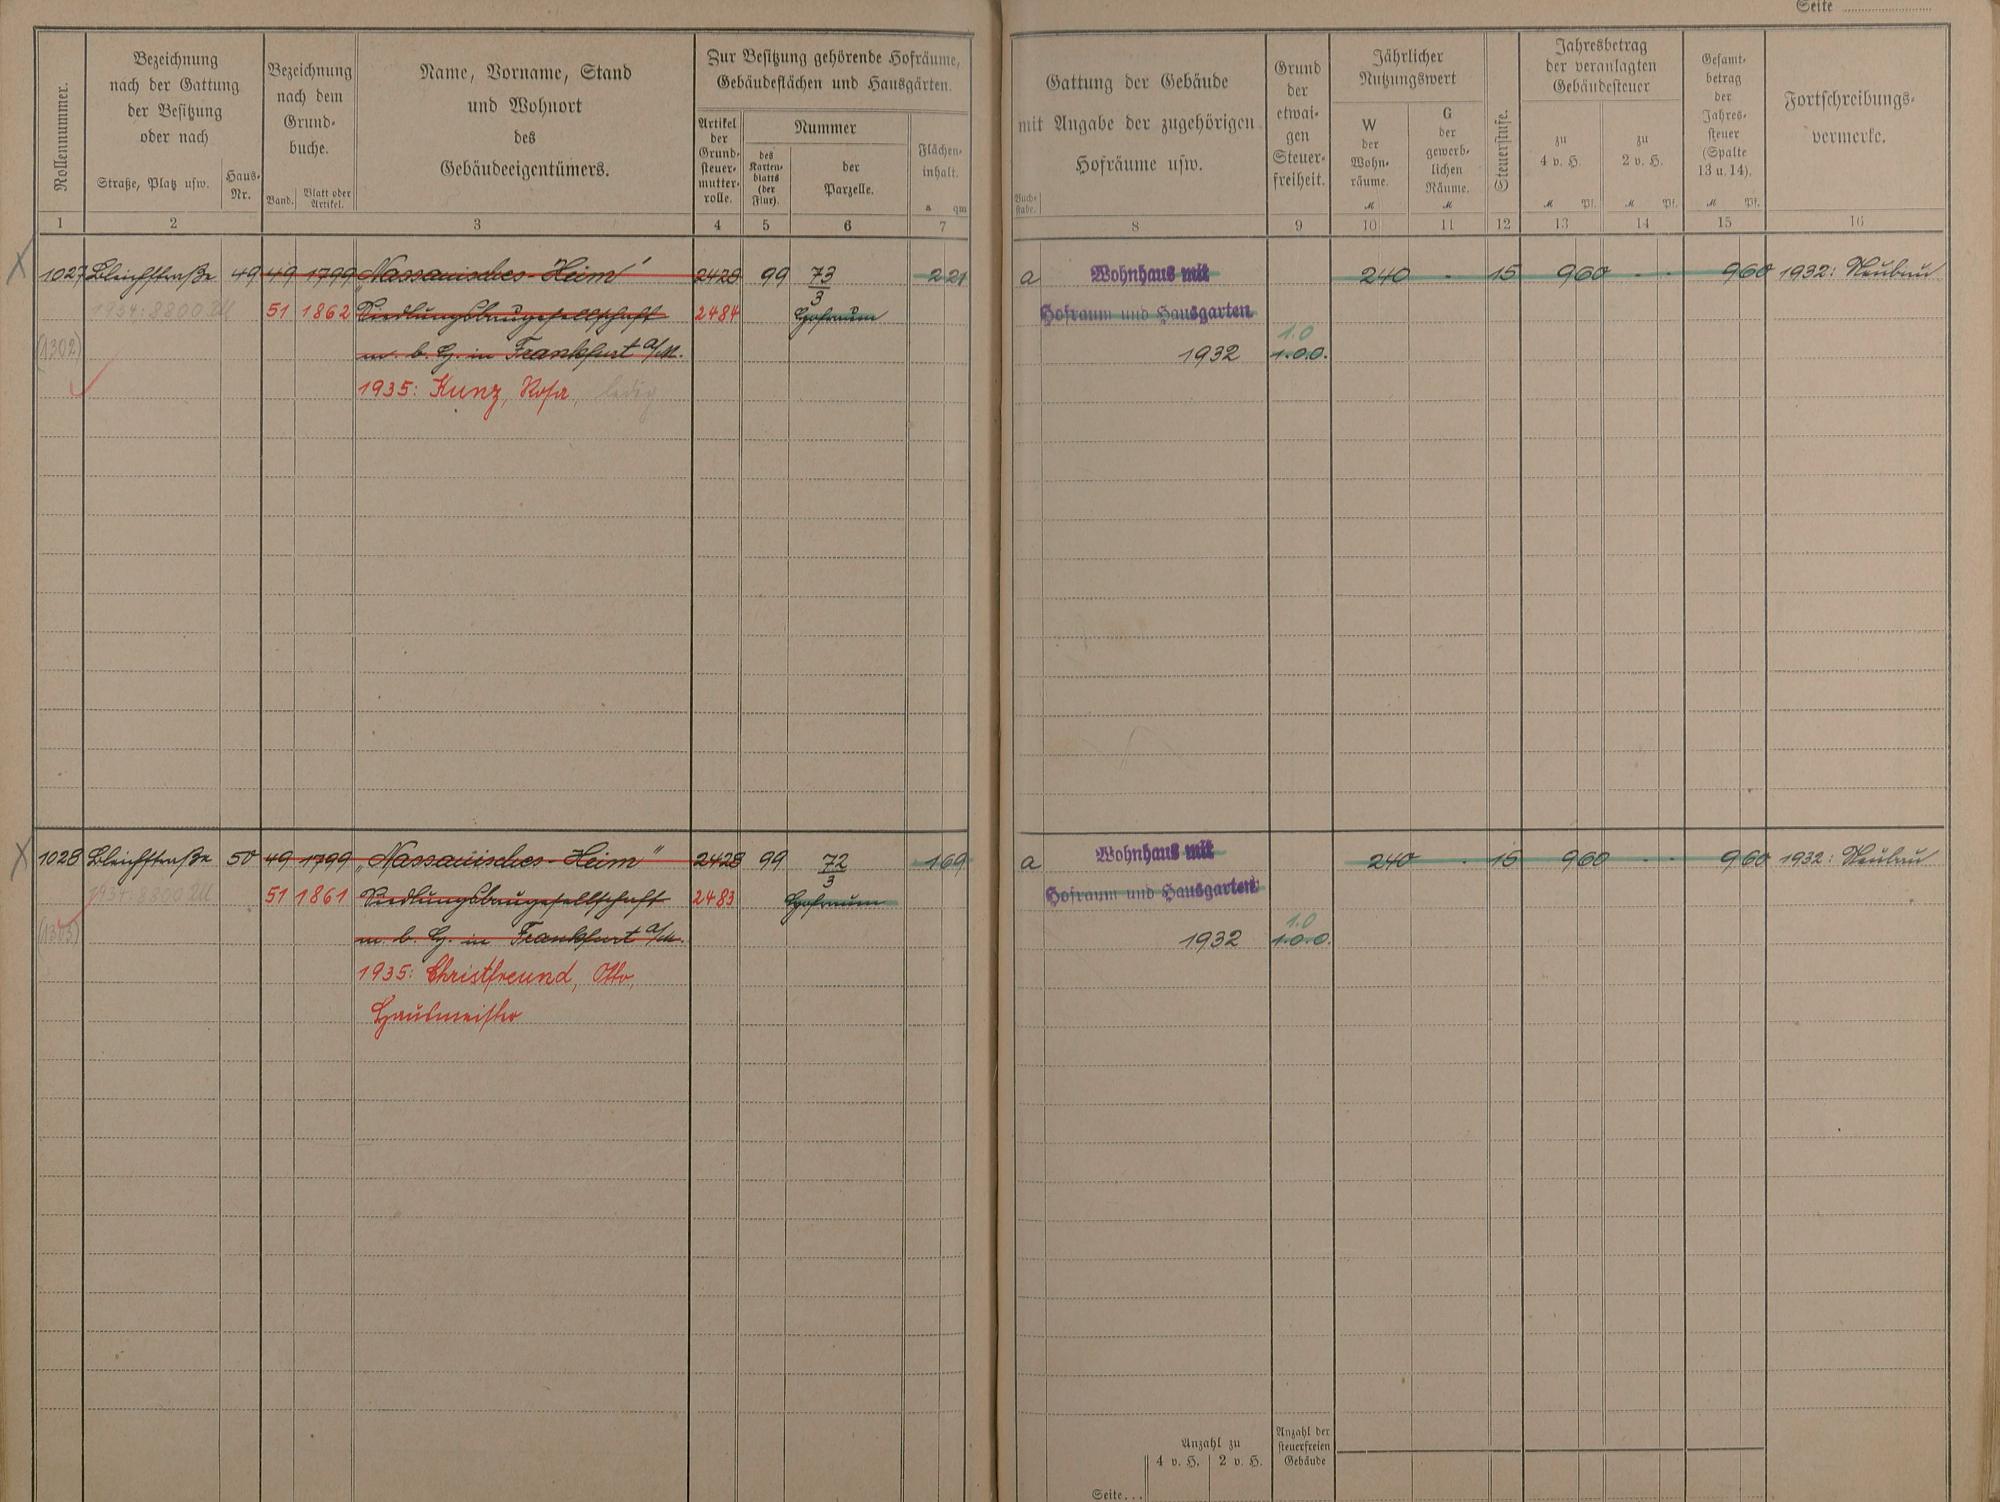 Seite
Rollennummer.
Bezeichnung
nach der Gattung
der Besitzung
oder nach
Straße, Platz usw.
Haus-
Nr.
Bezeichnung
nach dem
Grund-
buche.
Band.
Blatt oder
Artikel.
Name, Vorname, Stand
und Wohnort
des
Gebäudeeigentümers.
Zur Besitzung gehörende Hofräume,
Gebäudeflächen und Hausgärten.
Artikel
der
Grund-
steuer-
mutter-
rolle.
Nummer
des
Karten-
blatts
(der
Flur).
der
Parzelle.
Flächen-
inhalt.
a qm
Buch-
stabe.
Gattung der Gebäude
mit Angabe der zugehörigen
Hofräume usw.
Grund
der
etwai-
gen
Steuer-
freiheit.
Jährlicher
Nutzungswert
W
der
Wohn-
räume.
M
G
der
gewerb-
lichen
Räume.
M
Steuerstufe.
Jahresbetrag
der veranlagten
Gebäudesteuer
zu
4 v. H.
M Pf.
zu
2 v. H.
M Pf.
Gesamt-
betrag
der
Jahres-
steuer
(Spalte
13 u. 14).
M Pf.
Fortschreibungs-
vermerke.
1 2 3 4 5 6 7 8 9 10 11 12 13 14 15 16
1027 Bleichstraße 49 49 1799 „Nassauisches-Heim" 2428 99 73/3 2 21 a Wohnhaus mit 240 - 15 960 - - 960 1932: Neubau
1934: 8800 RM 51 1862 Siedlungsbaugesellschaft 2484 Hofraum Hofraum und Hausgarten
(1302) m. b. H. in Frankfurt a/M. 1932 1.0 1.0.0.
1935: Kunz, Rosa, ledig
1028 Bleichstraße 50 49 1799 „Nassauisches-Heim" 2428 99 72/3 1 69 a Wohnhaus mit 240 - 15 960 - - 960 1932: Neubau
1934: 8800 RM 51 1861 Siedlungsbaugesellschaft 2483 Hofraum Hofraum und Hausgarten
(1303) m. b. H. in Frankfurt a/M. 1932 1.0 1.0.0.
1935: Christfreund, Otto,
Hausmeister
Anzahl zu
4 v. H. 2 v. H.
Anzahl der
steuerfreien
Gebäude
Seite...